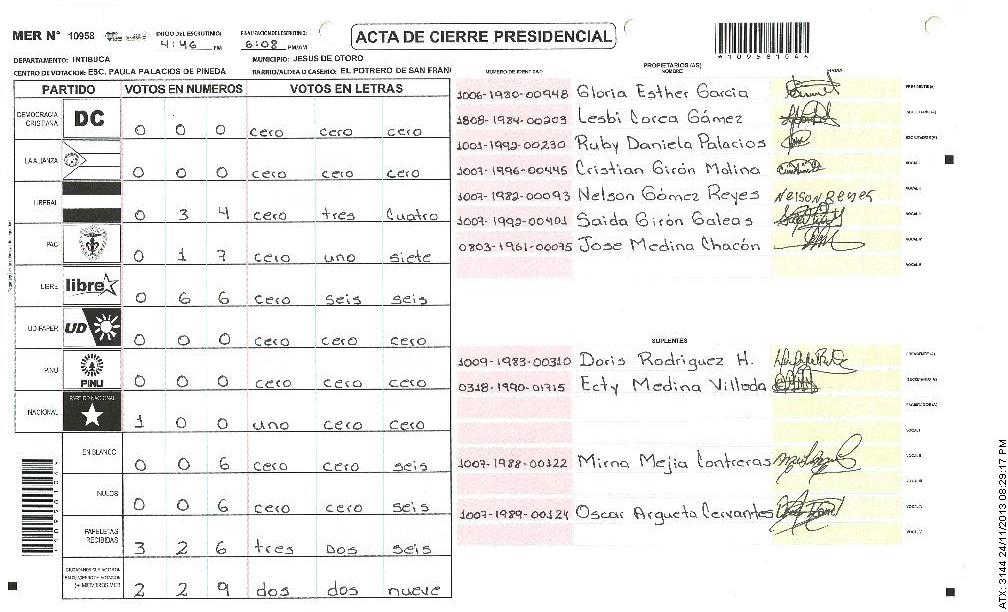 MER N° 10958 INICIO DEL ESCRUTINIO: 4:46 PM FINALIZACION DEL ESCRUTINIO: 6:08 PM/AM ACTA DE CIERRE PRESIDENCIAL
DEPARTAMENTO: INTIBUCA MUNICIPIO: JESUS DE OTORO
CENTRO DE VOTACION: ESC. PAULA PALACIOS DE PINEDA BARRIO/ALDEA O CASERIO: EL POTRERO DE SAN FRAN
PARTIDO VOTOS EN NUMEROS VOTOS EN LETRAS
DEMOCRACIA CRISTIANA DC 0 0 0 cero cero cero
LA ALIANZA 0 0 0 cero cero cero
LIBERAL 0 3 4 cero tres Cuatro
PAC 0 1 7 cero uno siete
LIBRE libre 0 6 6 cero seis seis
UD-FAPER UD 0 0 0 cero cero cero
PINU PINU 0 0 0 cero cero cero
NACIONAL PARTIDO NACIONAL 1 0 0 uno cero cero
EN BLANCO 0 0 6 cero cero seis
NULOS 0 0 6 cero cero seis
PAPELETAS RECIBIDAS 3 2 6 tres Dos seis
2 2 9 dos dos nueve
*10958104*
PROPIETARIOS (AS)
NUMERO DE IDENTIDAD NOMBRE FIRMA
1006-1980-00948 Gloria Esther Garcia
1808-1984-00203 Lesbi Lorca Gámez
1001-1992-00230 Ruby Daniela Palacios
1007-1996-00445 Cristian Girón Molina
1007-1982-00093 Nelson Gómez Reyes Nelson Reyes
1007-1992-00401 Saida Girón Galeas
0803-1961-00075 Jose Medina Chacón
SUPLENTES
1009-1983-00310 Doris Rodriguez H.
0318-1990-01715 Ecty Medina Villeda
1007-1988-00322 Mirna Mejia Contreras
1007-1989-00124 Oscar Argueta Cervantes
ATX: 3144 24/11/2013 08:29:17 PM